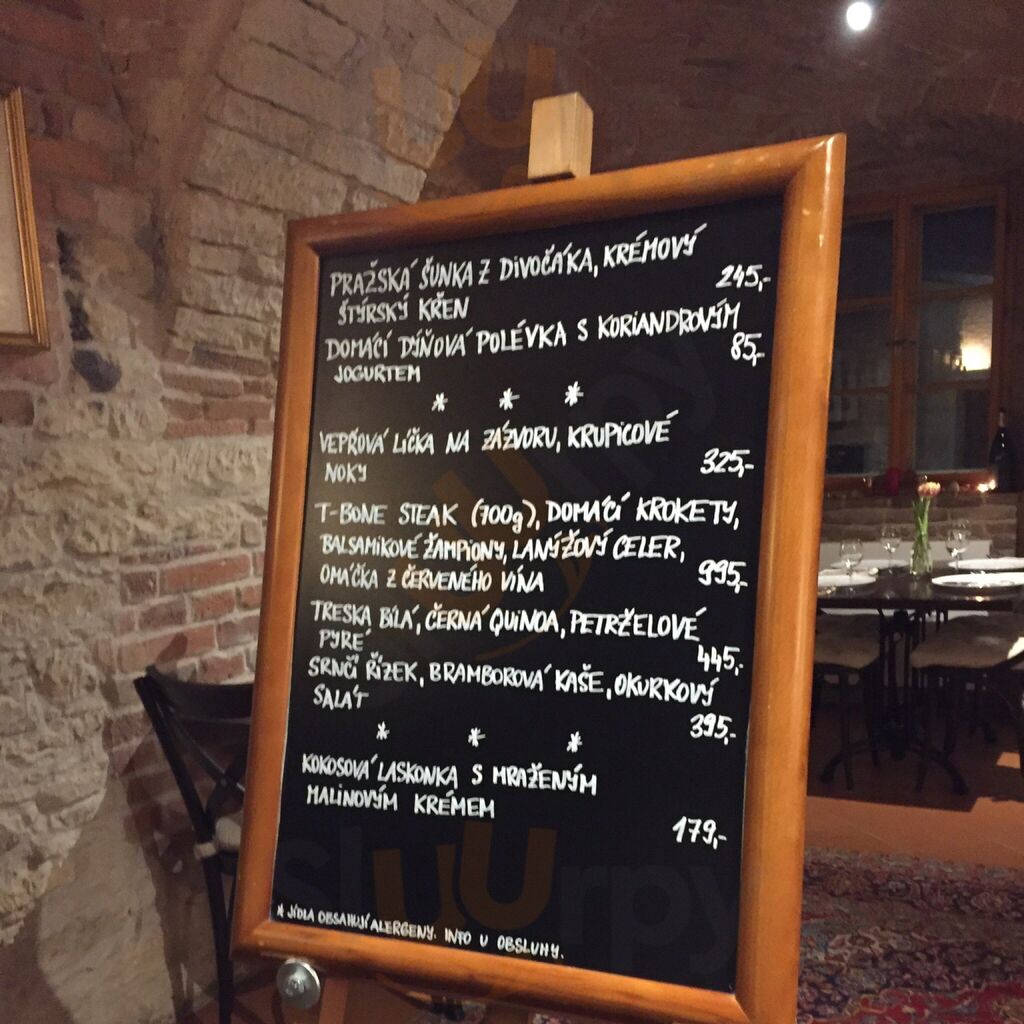 PRAŽSKÁ ŠUNKA Z DIVOČÁKA, KRÉMOVÝ
ŠTÝRSKÝ KŘEN 245,-
DOMÁCÍ DÝŇOVÁ POLÉVKA S KORIANDROVÝM
JOGURTEM 85,-
* * *
VEPŘOVÁ LÍČKA NA ZÁZVORU, KRUPICOVÉ
NOKY 325,-
T-BONE STEAK (700g), DOMÁCÍ KROKETY,
BALSAMIKOVÉ ŽAMPIONY, LANÝŽOVÝ CELER,
OMÁČKA Z ČERVENÉHO VÍNA 995,-
TRESKA BÍLÁ, ČERNÁ QUINOA, PETRŽELOVÉ
PYRÉ 445,-
SRNČÍ ŘÍZEK, BRAMBOROVÁ KAŠE, OKURKOVÝ
SALÁT 395,-
* * *
KOKOSOVÁ LASKONKA S MRAŽENÝM
MALINOVÝM KRÉMEM 179,-
* JÍDLA OBSAHUJÍ ALERGENY. INFO U OBSLUHY.
sluurpy